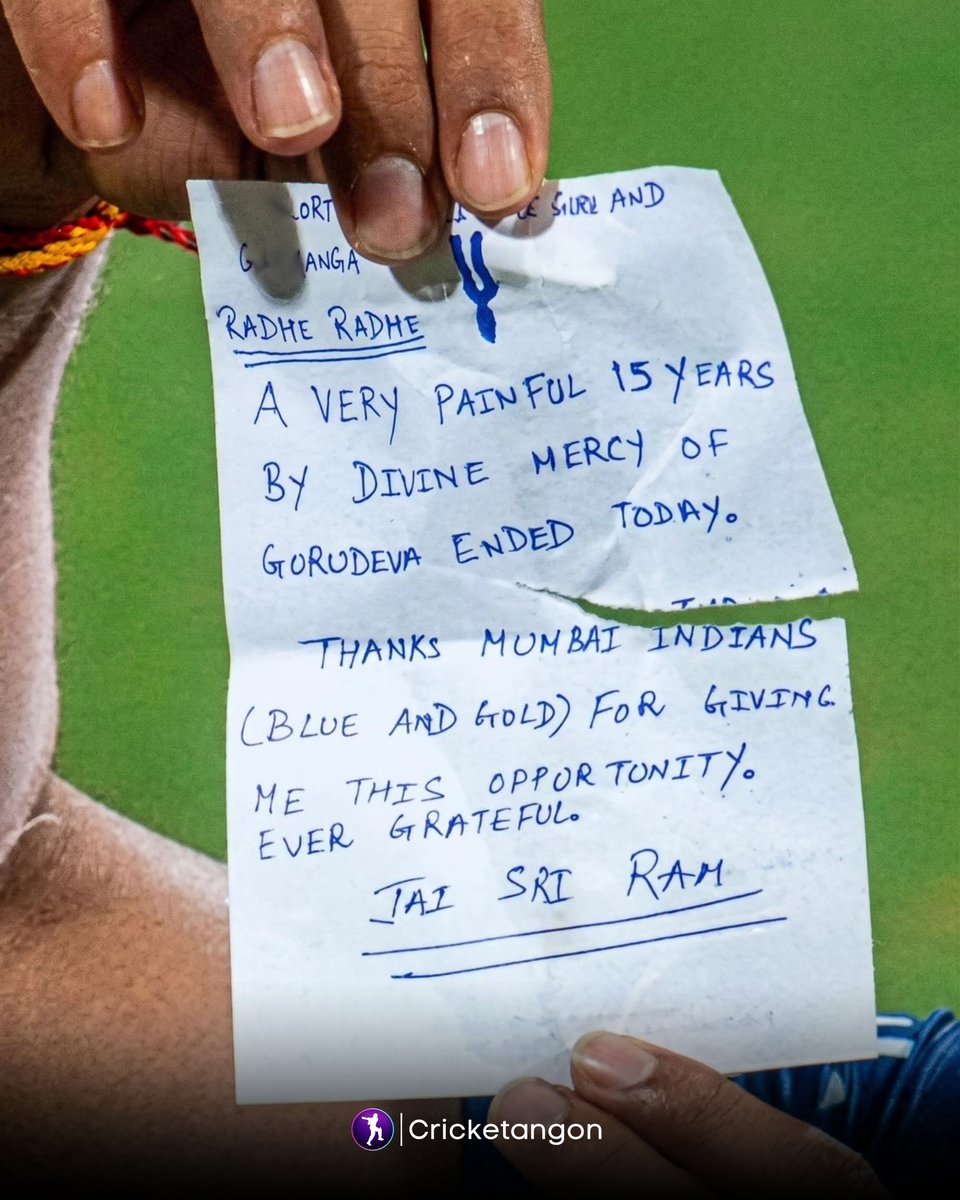 AND
RADHE RADHE
A VERY PAINFUL 15 YEARS
BY DIVINE MERCY OF
GORUDEVA ENDED TODAY.
THANKS MUMBAI INDIANS
(BLUE AND GOLD) FOR GIVING
ME THIS OPPORTUNITY.
EVER GRATEFUL.
JAI SRI RAM
Cricketangon